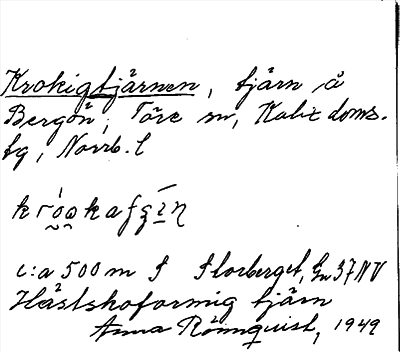 Krokigtjärnen, tjärn å
Bergön, Töre sn, Kalix doms-
fg, Norrb. l
c:a 500 m S Storberget, Gn 37 NV
Hästskoformig tjärn
Anna Rönnquist, 1949